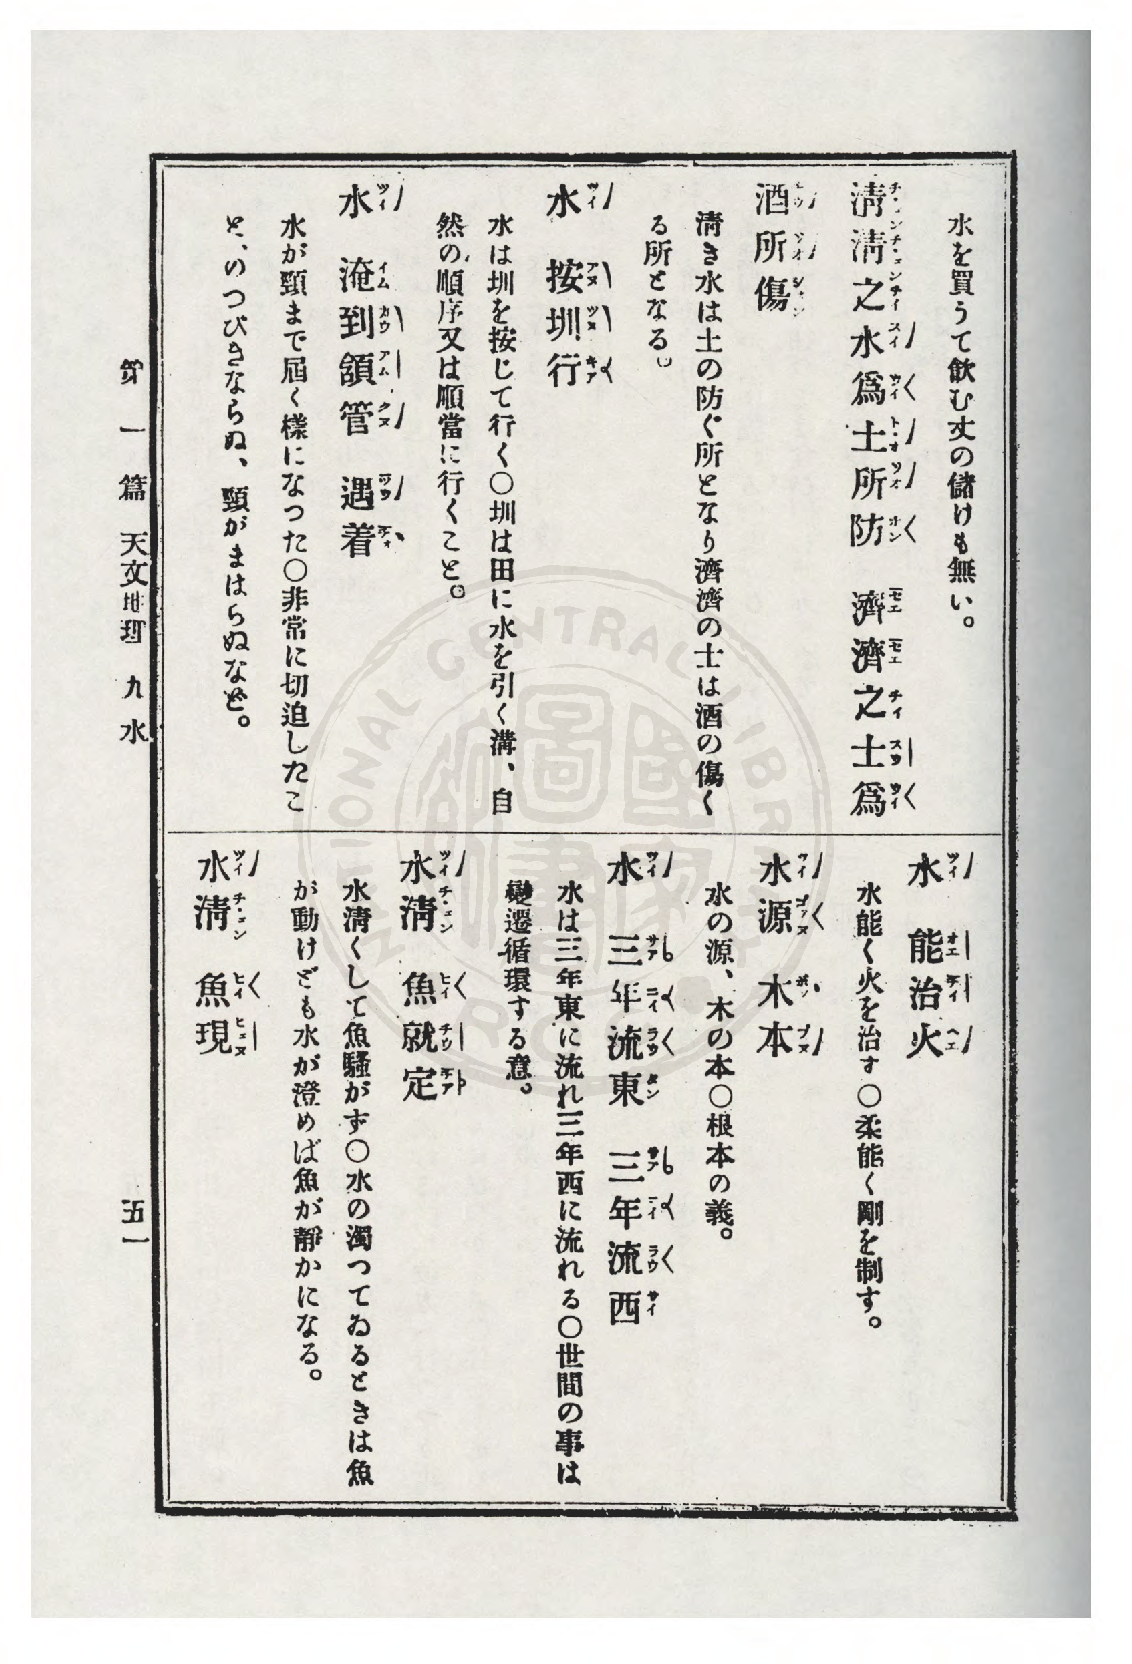 水を買うて飮む丈の儲けも無い。
淸淸之水爲土所防　濟濟之士爲
酒所傷
淸き水は土の防ぐ所となり濟濟の士は酒の傷く
る所となる。
水　按圳行
水は圳を按じて行く〇圳は田に水を引く溝、自
然の順序又は順當に行くこと。
水　淹到頷管　遇着
水が頸まで屆く樣になつた〇非常に切迫したこ
と、のつぴきならぬ、頸がまはらぬなど。
水　能治火
水能く火を治す〇柔能く剛を制す。
水源　木本
水の源、木の本〇根本の義。
水　三年流東　三年流西
水は三年東に流れ三年西に流れる〇世間の事は
變遷循環する意。
水淸　魚就定
水淸くして魚騷がず〇水の濁つてゐるときは魚
が動けども水が澄めば魚が靜かになる。
水淸　魚現
第一篇　天文地理　九水
五一
NATIONAL CENTRAL LIBRARY
R.O.C.
國家圖書館